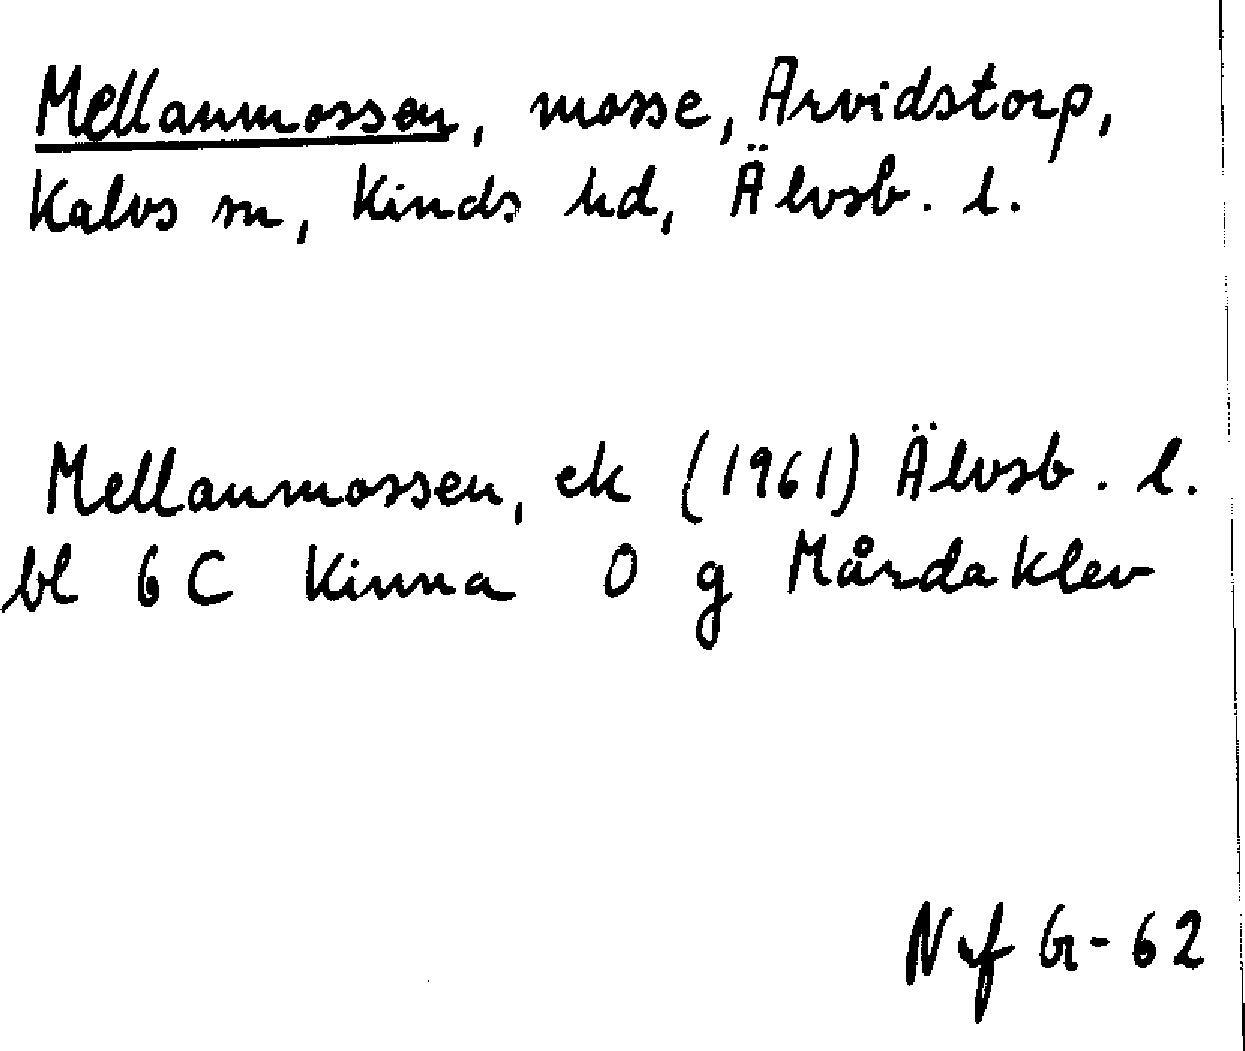 Mellanmossen, mosse, Arvidstorp,
Kalvs sn, Kinds hd, Älvsb. l.
Mellanmossen, ek (1961) Älvsb. l.
bl 6 C Kinna O g Mårdaklev
G-62